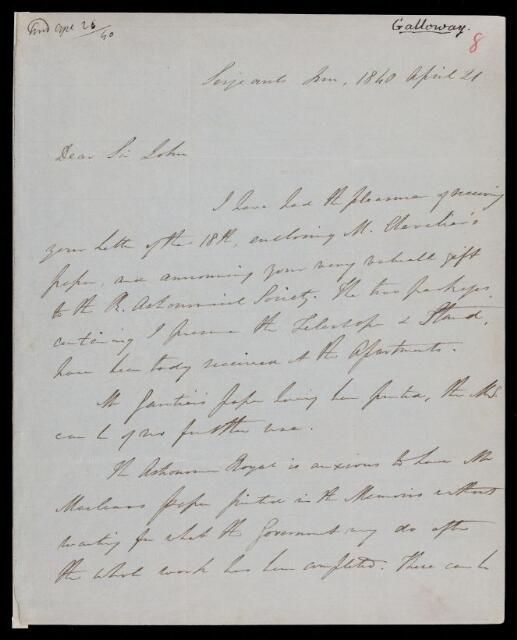 Galloway.
8
26
40
Serjeants Inn, 1840 April 21
Dear Sir John
I have had the pleasure of receiving
your letter of the 18th, enclosing M. Chevalier's
paper, and announcing your very valuable gift
to the R. Astronomical Society. The two packages
containing I presume the Telescope & Stand,
have been today received at the Apartments.
Mr Gautier's paper having been printed, the MS.
can be of no further use.
The Astronomer Royal is anxious to have Mr
Maclears paper printed in the Memoirs without
waiting for what the Government may do after
the whole work has been completed. There can be